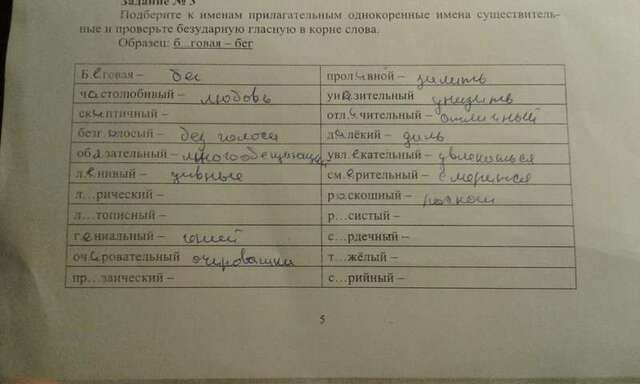 Задание № 3
Подберите к именам прилагательным однокоренные имена существитель-
ные и проверьте безударную гласную в корне слова.
Образец: б_говая – бег
Беговая – бег
проливной – залить
честолюбивый – любовь
унизительный унизить
скептичный –
отличительный – отличный
безголосый – без голоса
далёкий – даль
обязательный –
увлекательный – увлекаться
ленивый –
смирительный –
л…рический –
роскошный –
л…тописный –
р…систый –
гениальный – гений
с…рдечный –
очаровательный
т…жёлый –
пр…заический –
с…рийный –
5